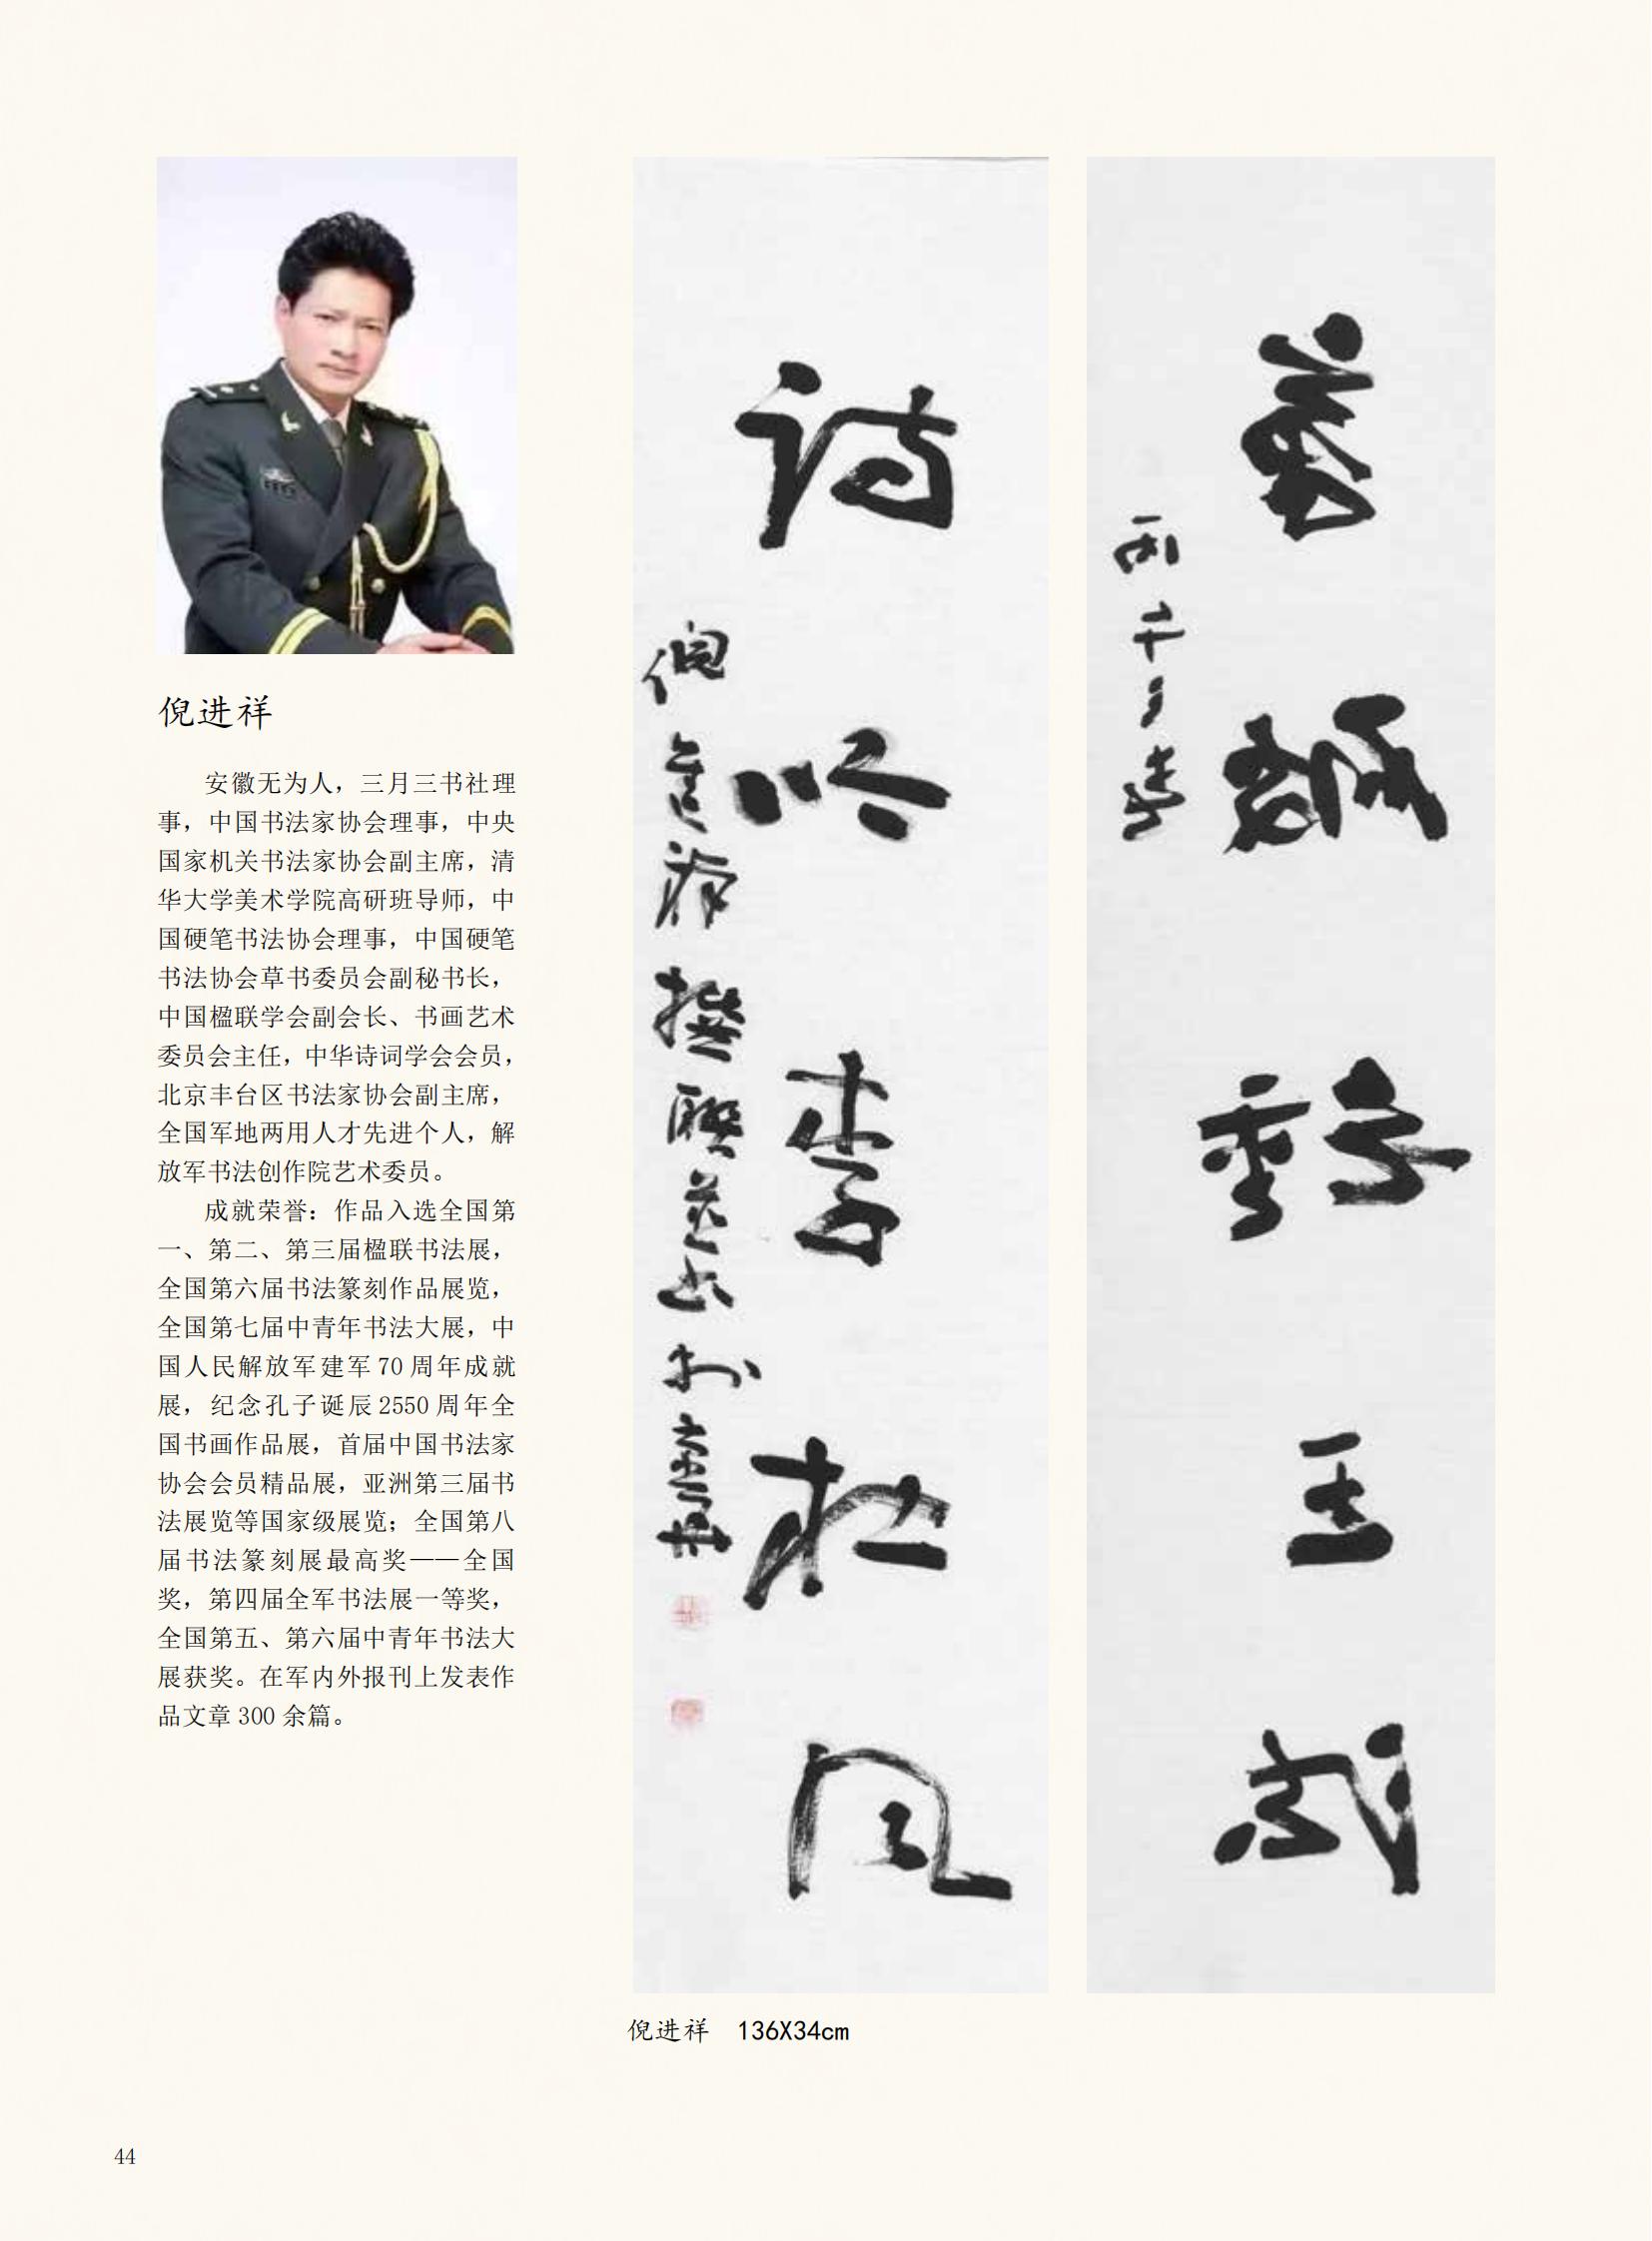 倪进祥
安徽无为人，三月三书社理
事，中国书法家协会理事，中央
国家机关书法家协会副主席，清
华大学美术学院高研班导师，中
国硬笔书法协会理事，中国硬笔
书法协会草书委员会副秘书长，
中国楹联学会副会长、书画艺术
委员会主任，中华诗词学会会员，
北京丰台区书法家协会副主席，
全国军地两用人才先进个人，解
放军书法创作院艺术委员。
成就荣誉：作品入选全国第
一、第二、第三届楹联书法展，
全国第六届书法篆刻作品展览，
全国第七届中青年书法大展，中
国人民解放军建军 70 周年成就
展，纪念孔子诞辰 2550 周年全
国书画作品展，首届中国书法家
协会会员精品展，亚洲第三届书
法展览等国家级展览；全国第八
届书法篆刻展最高奖——全国
奖，第四届全军书法展一等奖，
全国第五、第六届中青年书法大
展获奖。在军内外报刊上发表作
品文章 300 余篇。
王
诗吟李杜风
倪進祥撰聯并
倪进祥 136X34cm
44